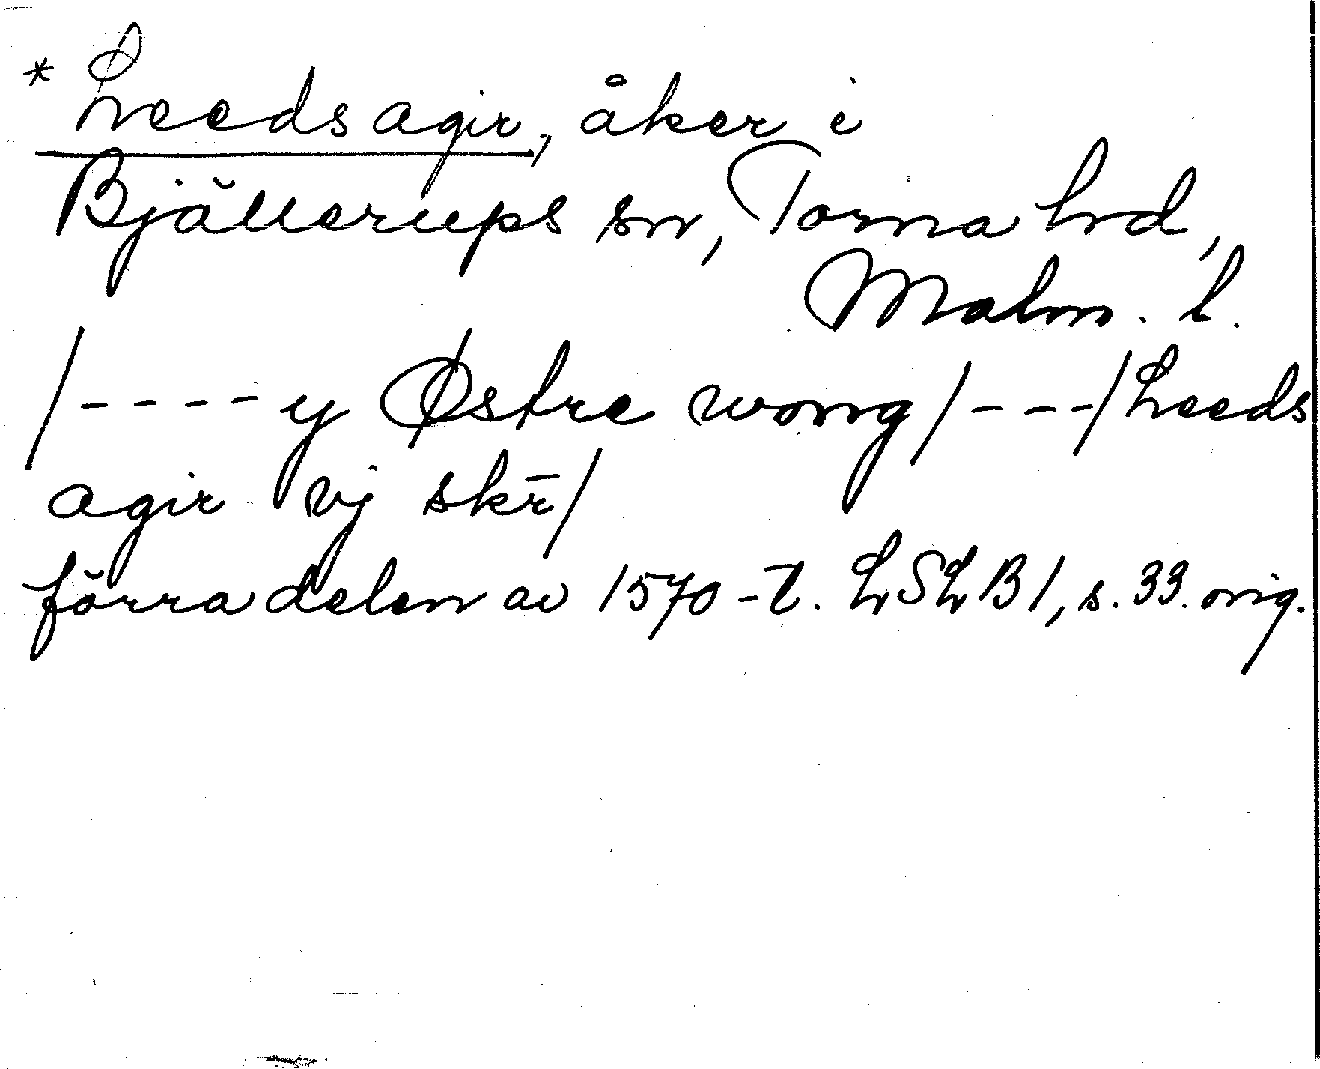 * Leedsagir, åker i
Bjällerups sn, Torna hd,
Malm. l.
/----y Østre wong/---/Leeds
agir vj skr̄/
förra delen av 1570-t. LSLB1, s. 33. orig.